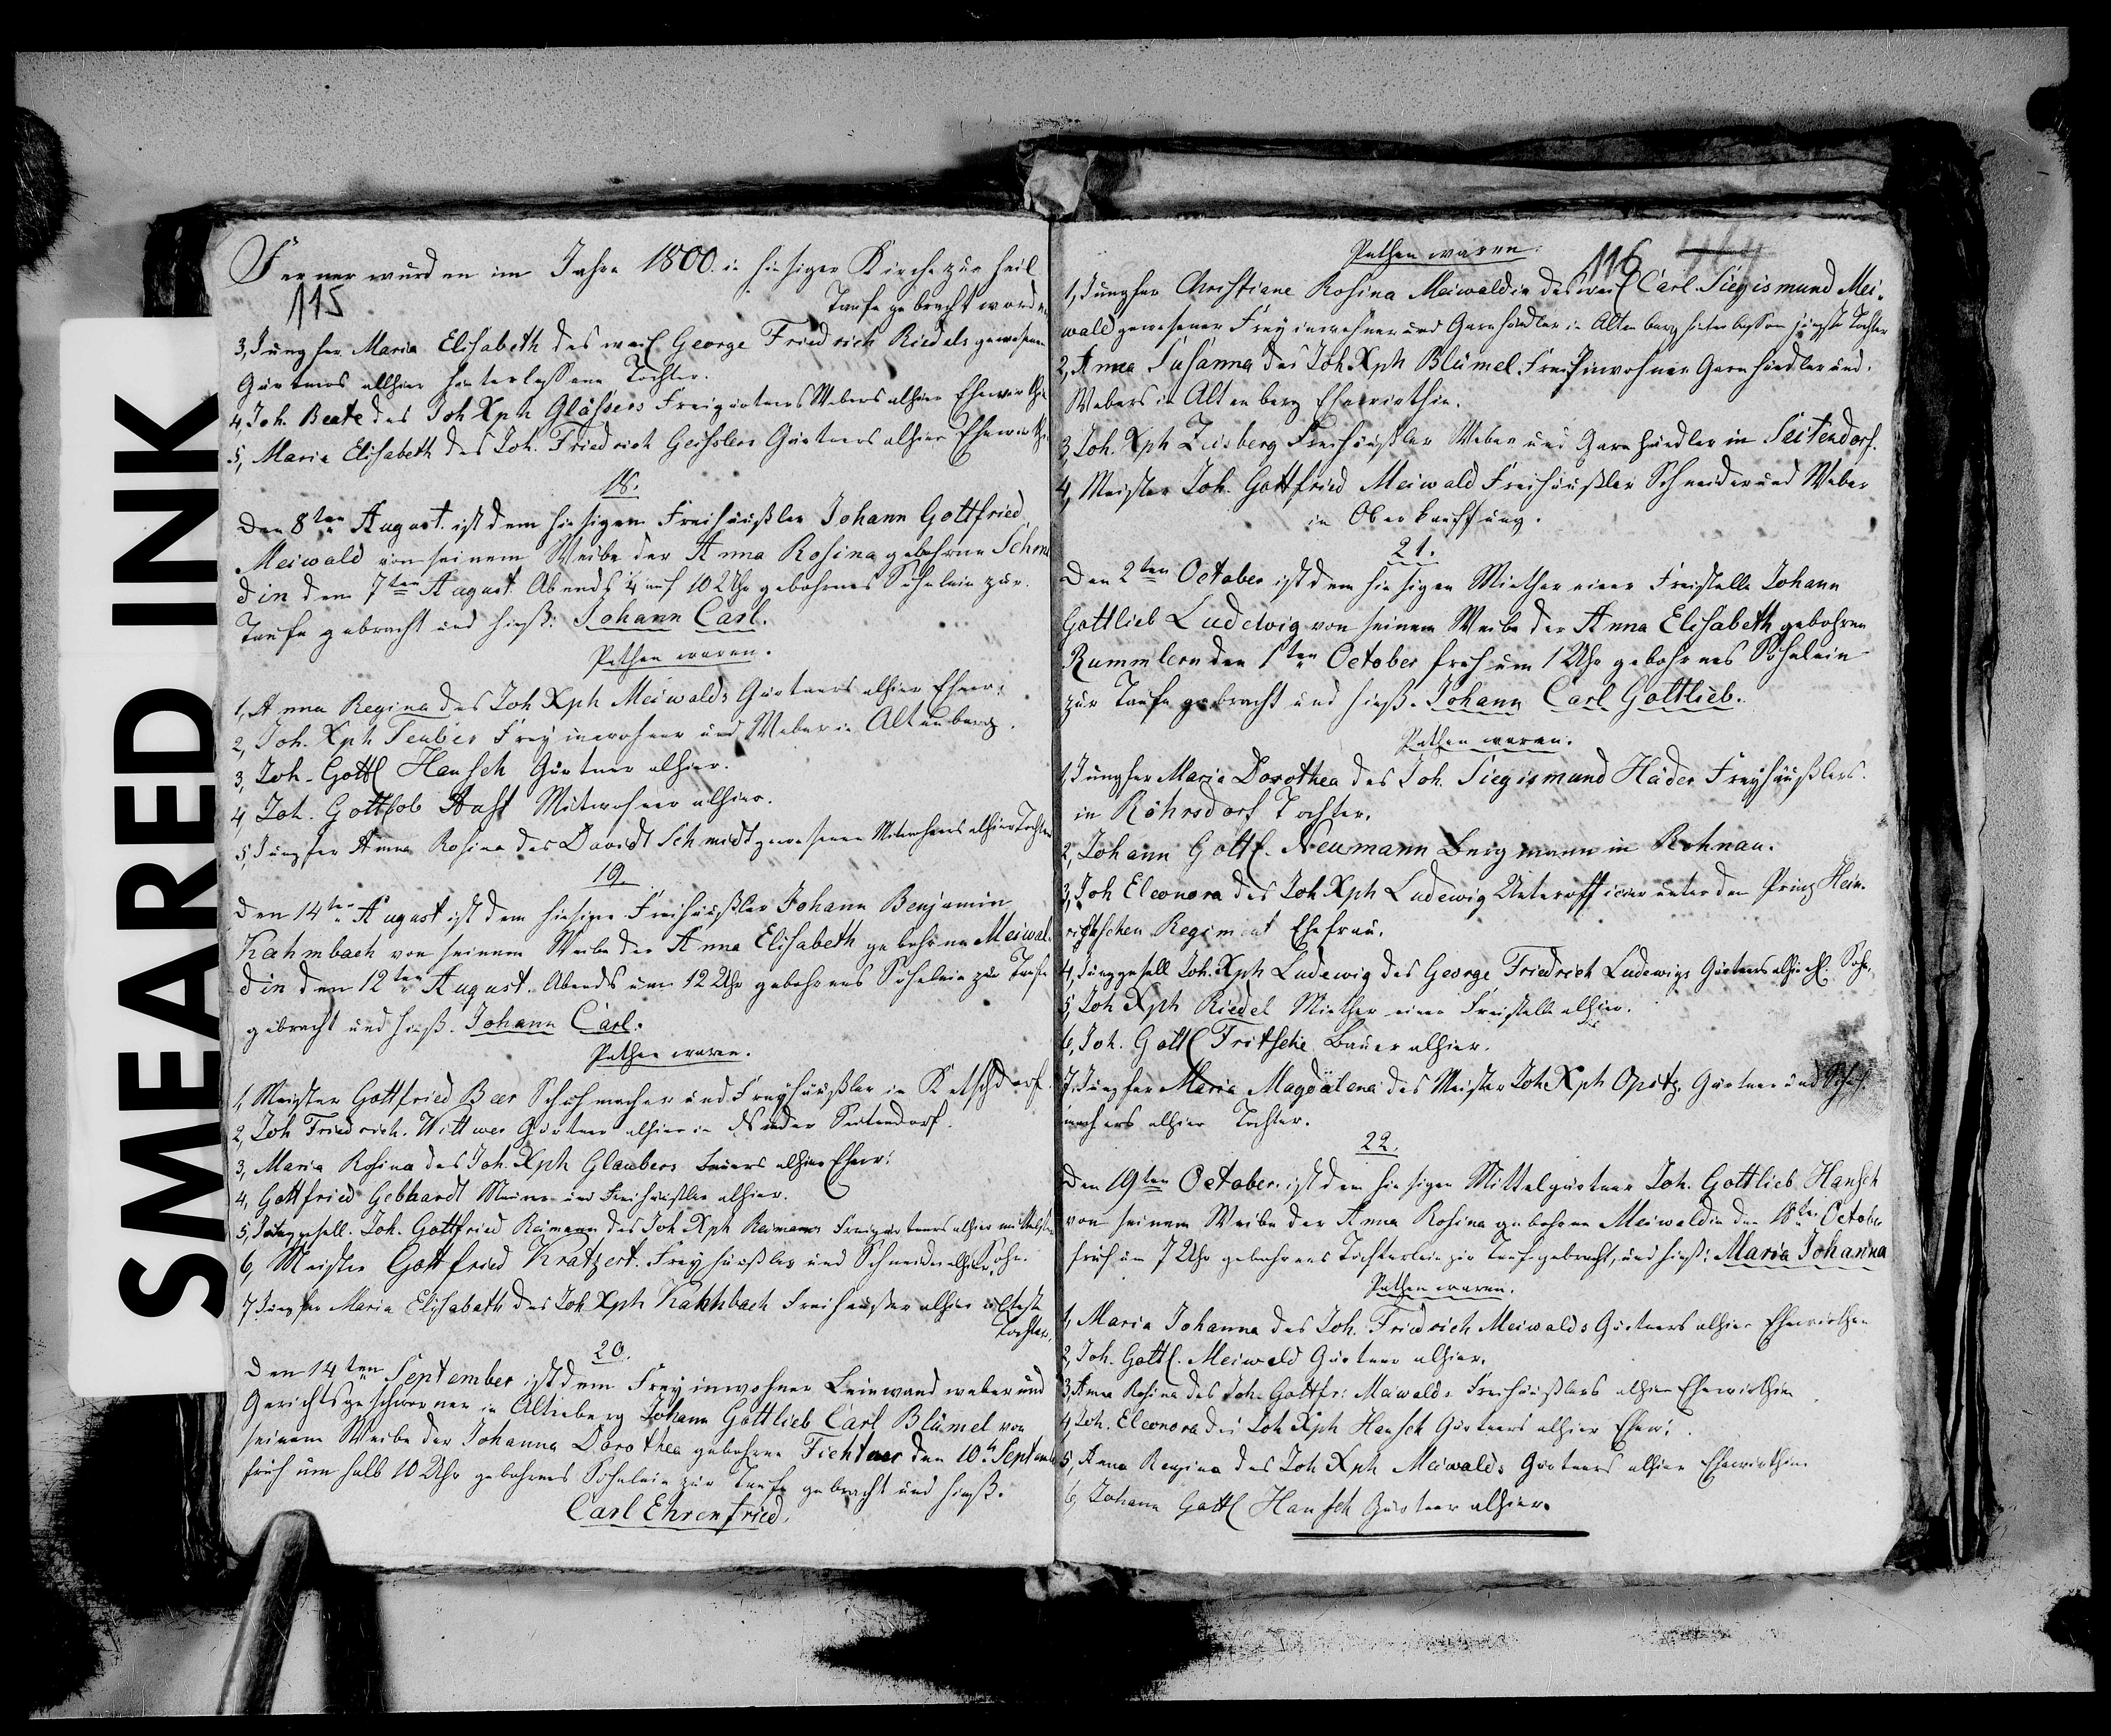 SMEARED INK
115
Ferner wurden im Jahre 1800. in hiesiger Kirche zur heil
Taufe gebracht worden
3, Jungfer Maria Elisabeth des weil George Friedrich Riedels gewesenen
Gärtners allhier hinterlassene Tochter.
4, Joh. Beate des Joh Xph Glässers Freigärtners Webers alhier Ehewirthin
5, Maria Elisabeth des Joh. Friedrich Geisslers Gärtners alhier Ehewirthin
18.
Den 8ten August. ist dem hiesigen Freihäußler Johann Gottfried
Meiwald von seinem Weibe der Anna Rosina gebohrne Schmi
din den 7ten August Abends 1/4 auf 10 Uhr gebohrnes Söhnlein zur
Taufe gebracht und hieß: Johann Carl.
Pathen waren.
1, Anna Regina des Joh Xph Meiwalds Gärtners alhier Ehew:
2, Joh. Xph Teuber Freyinwohner und Weber in Altenberg.
3, Joh. Gottl Hansch Gärtner alhier.
4, Joh. Gottlob Mitwohner alhier.
5, Jungfer Anna Rosina des David Schmidt gewesenen Mitwohners alhier Tochter
19.
Den 14ten August ist dem hiesigen Freihäußler Johann Benjamin
Kahmbach von seinem Weibe der Anna Elisabeth gebohrne Meiwal
din den 12ten August. Abends um 12 Uhr gebohrnes Söhnlein zur Taufe
gebracht und hieß. Johann Carl.
Pathen waren.
1, Meister Gottfried Beer Schuhmacher und Freyhäußler in Ketschdorf.
2, Joh Friedrich. Wittwer Gärtner alhier in Nieder Seitendorf.
3, Maria Rosina des Joh. Xph Glaubers Bauers alhier Ehew:
4, Gottfried Gebhardt und Freihäußler alhier.
5, Junggesell. Joh. Gottfried Reimann des Joh. Xph Reimanns Freigärtners alhier mittelster
Sohn.
6, Meister Gottfried Kratzert. Freyhäußler und Schneider alhier
7 Jungfer Maria Elisabeth des Joh Xph Kahhbach Freihäußler alhier älteste
Tochter.
20.
Den 14ten September ist dem Freyinwohner Leinwandweber und
Gerichtsgeschworner in Altenberg Johann Gottlieb Carl Blümel von
seinem Weibe der Johanna Dorothea gebohrne Fichtner den 10t Septemb
früh um halb 10 Uhr gebohrnes Söhnlein zur Taufe gebracht und hieß.
Carl Ehrenfried.
116
Pathen waren.
1, Jungfer Christiane Rosina Meiwaldin des weil Carl Siegismund Mei-
wald gewesener Freyinwohner und Garnhändler in Altenberg hinterlassene jüngste Tochter
2, Anna Susanna des Joh Xph Blümel Freihinwohner Garnhändler und
Webers in Altenberg Ehewirthin.
3, Joh. Xph Zeisberg Freihäußler Weber und Garnhändler in Seitendorf.
4, Meister Joh. Gottfried Meiwald Freihäußler Schneider und Weber
in Oberkauffung.
21.
Den 2ten October ist dem hiesigen Miether einer Freistelle Johann
Gottlieb Ludewig von seinem Weibe der Anna Elisabeth gebohrne
Rummlern den 1ten October früh um 1 Uhr gebohrnes Söhnlein
zur Taufe gebracht und hieß. Johann Carl Gottlieb.
Pathen waren.
1, Jungfer Maria Dorothea des Joh. Siegismund Häder Freyhäußlers.
in Röhrsdorf Tochter.
2, Johann Gottl. Neumann Bergmann in Rohnau.
3, Joh Eleonora des Joh. Xph Ludewig Unterofficier unter dem Prinz Hein-
richschen Regiment Ehefrau.
4, Junggesell Joh. Xph Ludewig des George Friedrich Ludewigs Gärtners alhier Sohn,
5, Joh Xph Riedel Miether einer Freistelle alhier.
6, Joh. Gottl Fritsche Bauer alhier.
7, Jungfer Maria Magdalena des Meister Joh Xph Opitz Gärtner und Schuh-
machers alhier Tochter.
22.
Den 19ten October ist dem hiesigen Mittelgärtner Joh. Gottlieb Hansch
von seinem Weibe der Anna Rosina gebohrne Meiwaldin den 18ten October
früh um 7 Uhr gebohrnes Töchterlein zur Taufe gebracht, und hieß: Maria Johanna
Pathen waren.
1, Maria Johanna des Joh. Friedrich Meiwalds Gärtners alhier Ehewirthin
2, Joh. Gottl. Meiwald Gärtner alhier.
3, Anna Rosina des Joh. Gottfr: Meiwalds Freihäußlers alhier Ehewirthin
4, Joh. Eleonora des Joh Xph Hansch Gärtners alhier Ehew:
5, Anna Regina des Joh Xph Meiwalds Gärtners alhier Ehewirthin
6, Johann Gottl Hansch Gärtner alhier.